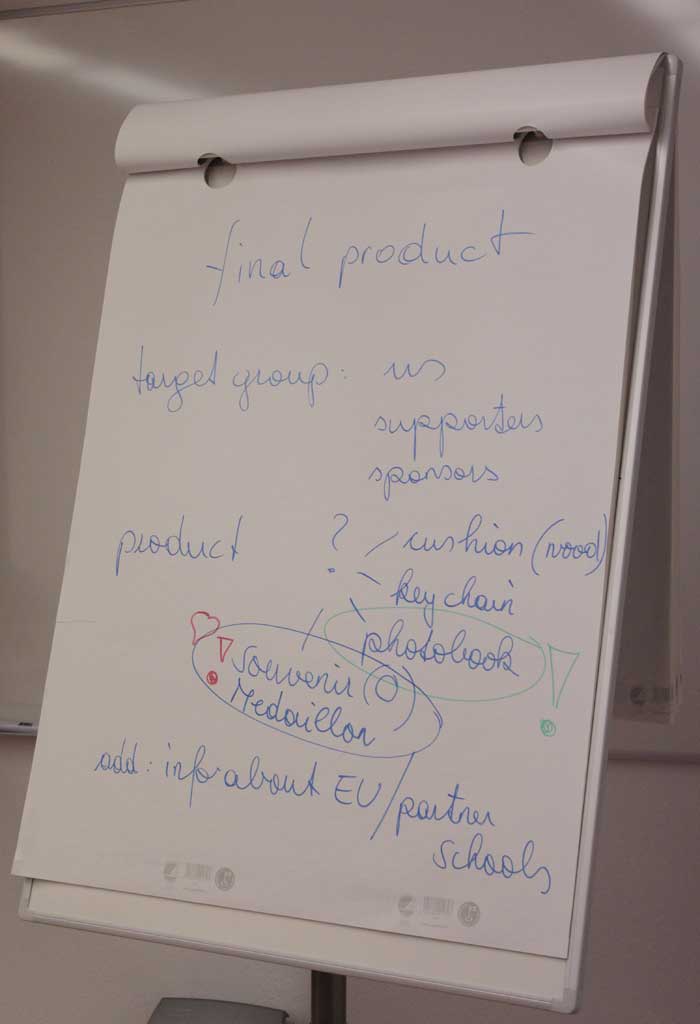 final product
target group: us
supporters
sponsors
product ? cushion (wood)
key chain
photobook !
! Souvenir (O)
Medaillon
add: info about EU/partner
schools